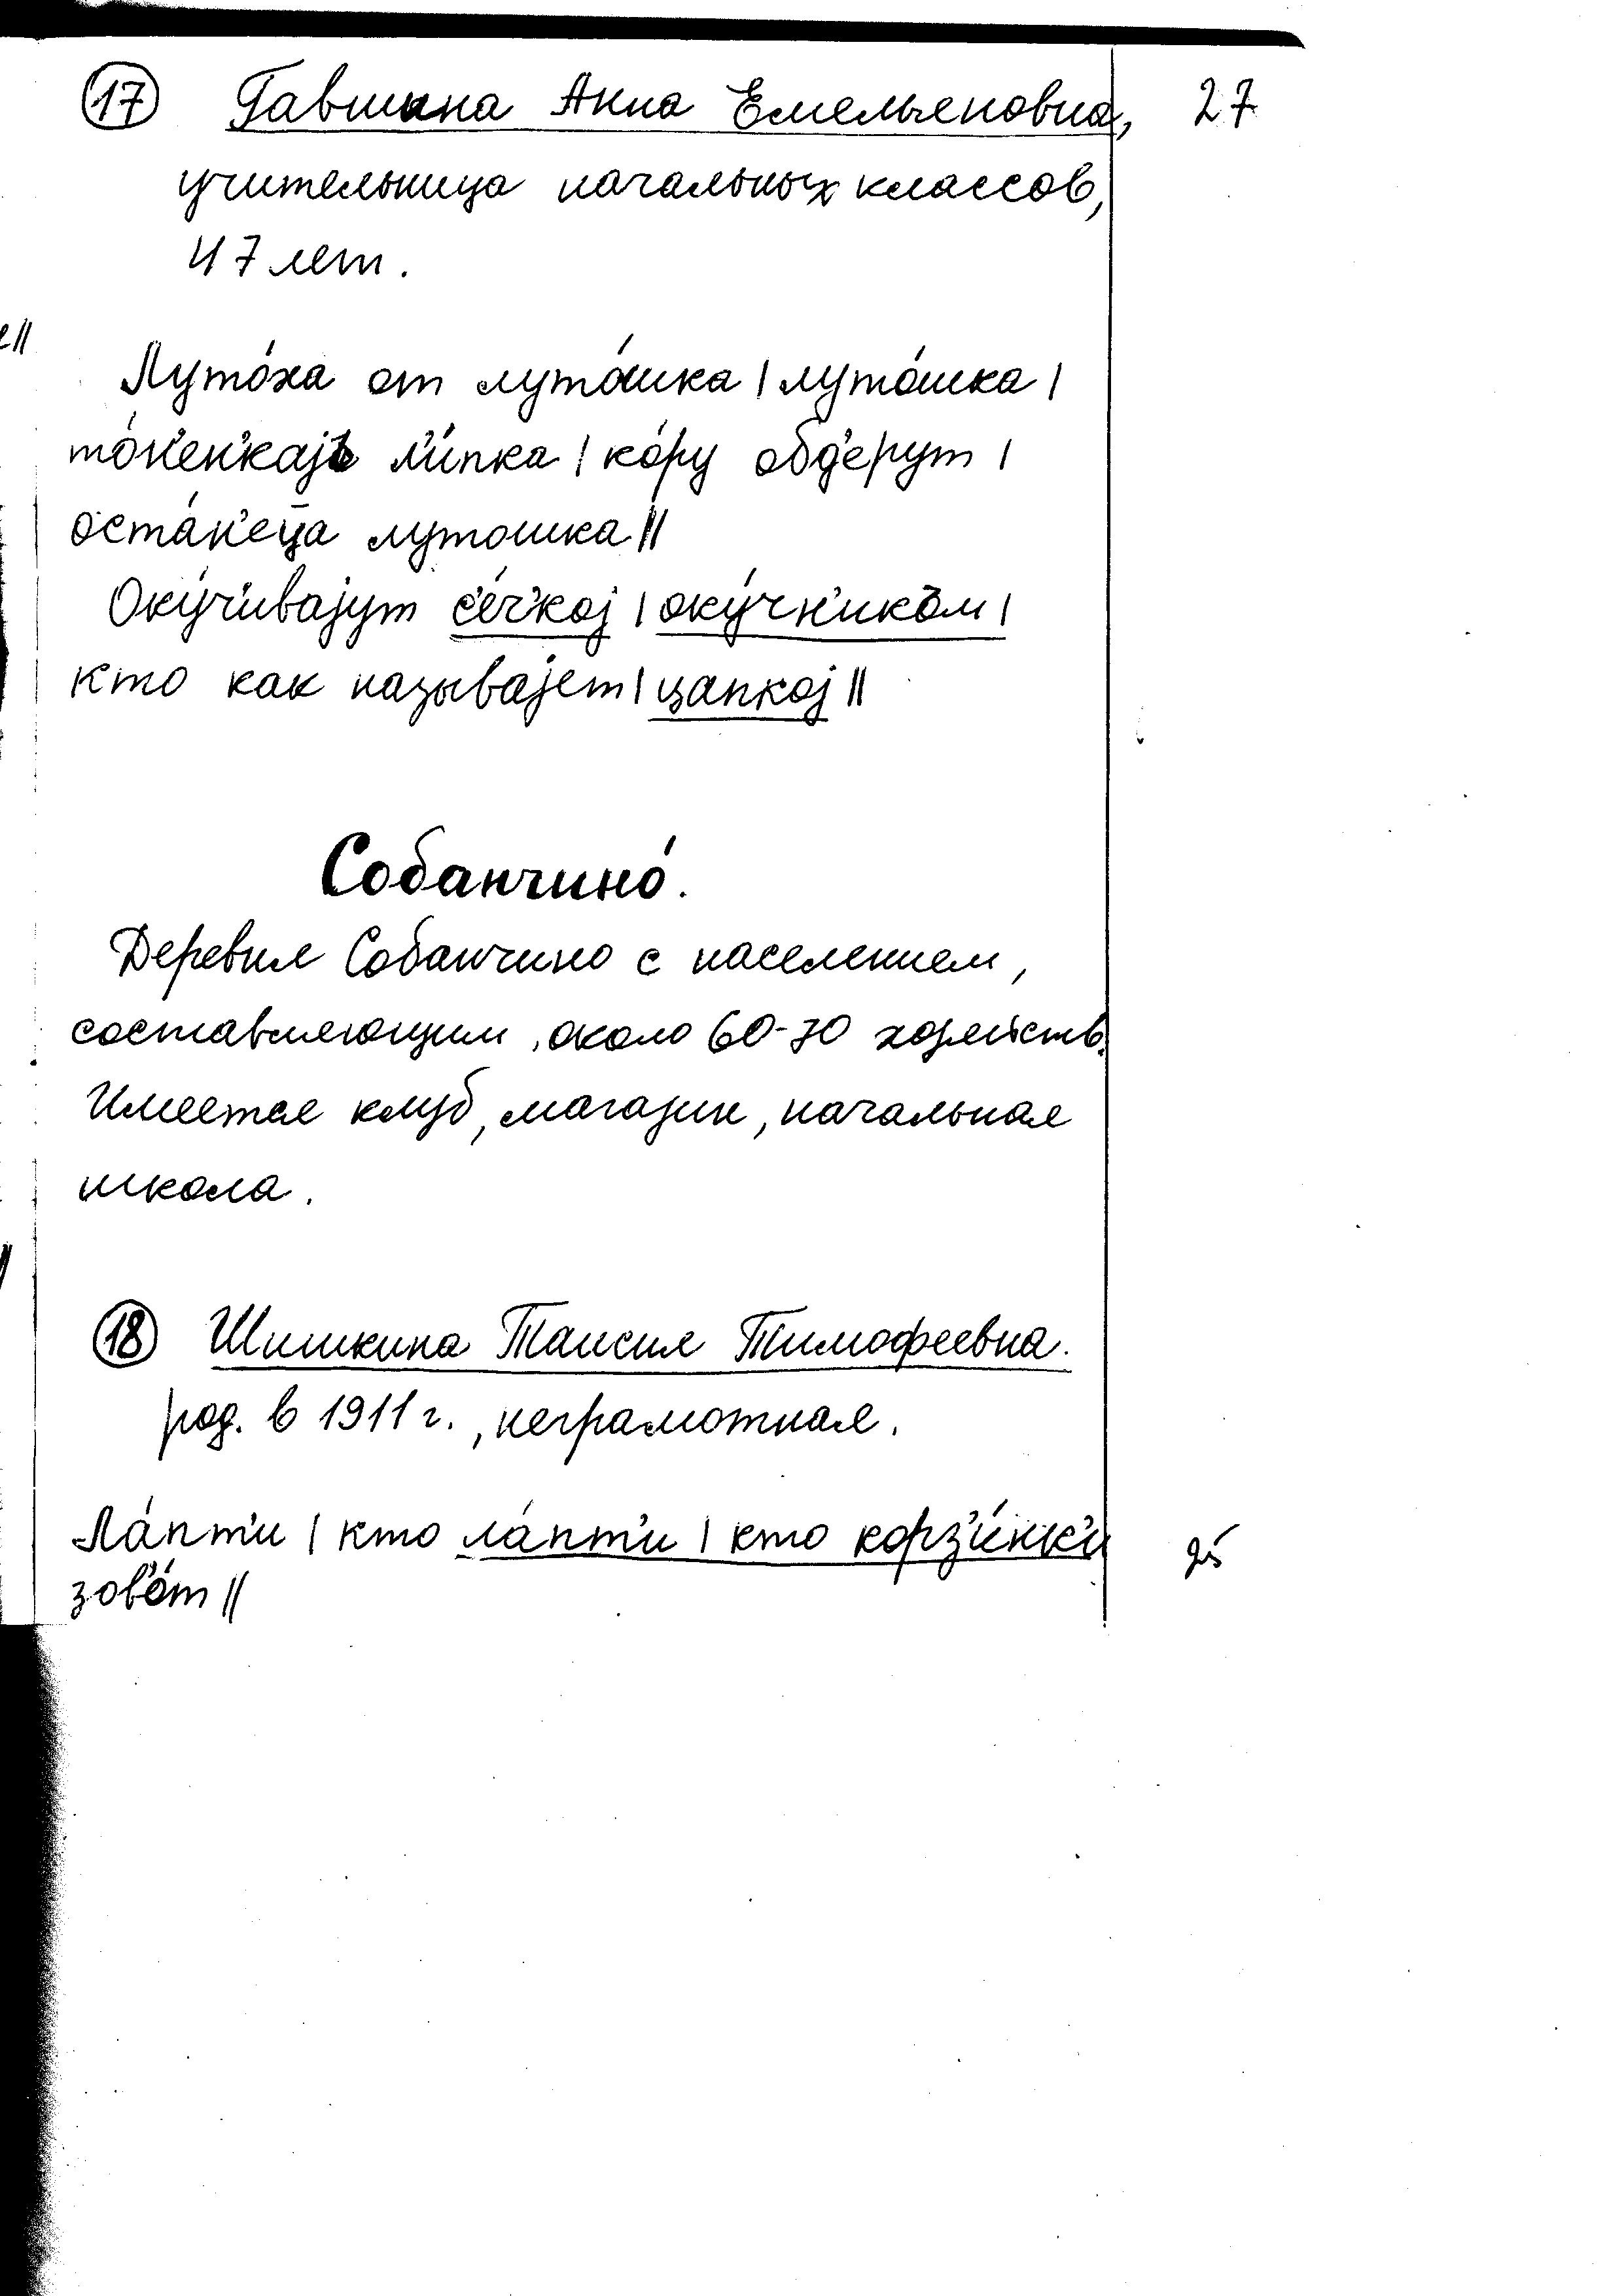 17 Гавшина Анна Емельяновна, 27
учительница начальных классов,
47 лет.
Луто́ха от луто́шка | луто́шка |
то́н'ен'кајъ л'и́пка | ко́ру обд'ерут |
оста́н'еца лутошка ||
Оку́ч'ивајут с'е́ч'кој | оку́чн'иком |
кто как называјет | цапкој ||
Собанчино́.
Деревня Собанчино с населением,
составляющим около 60-70 хозяйств.
Имеется клуб, магазин, начальная
школа.
18 Шишкина Таисия Тимофеевна.
род. в 1911 г., неграмотная.
Ла́пт'и | кто ла́пт'и | кто корз'и́нк'и
зов'о́т ||